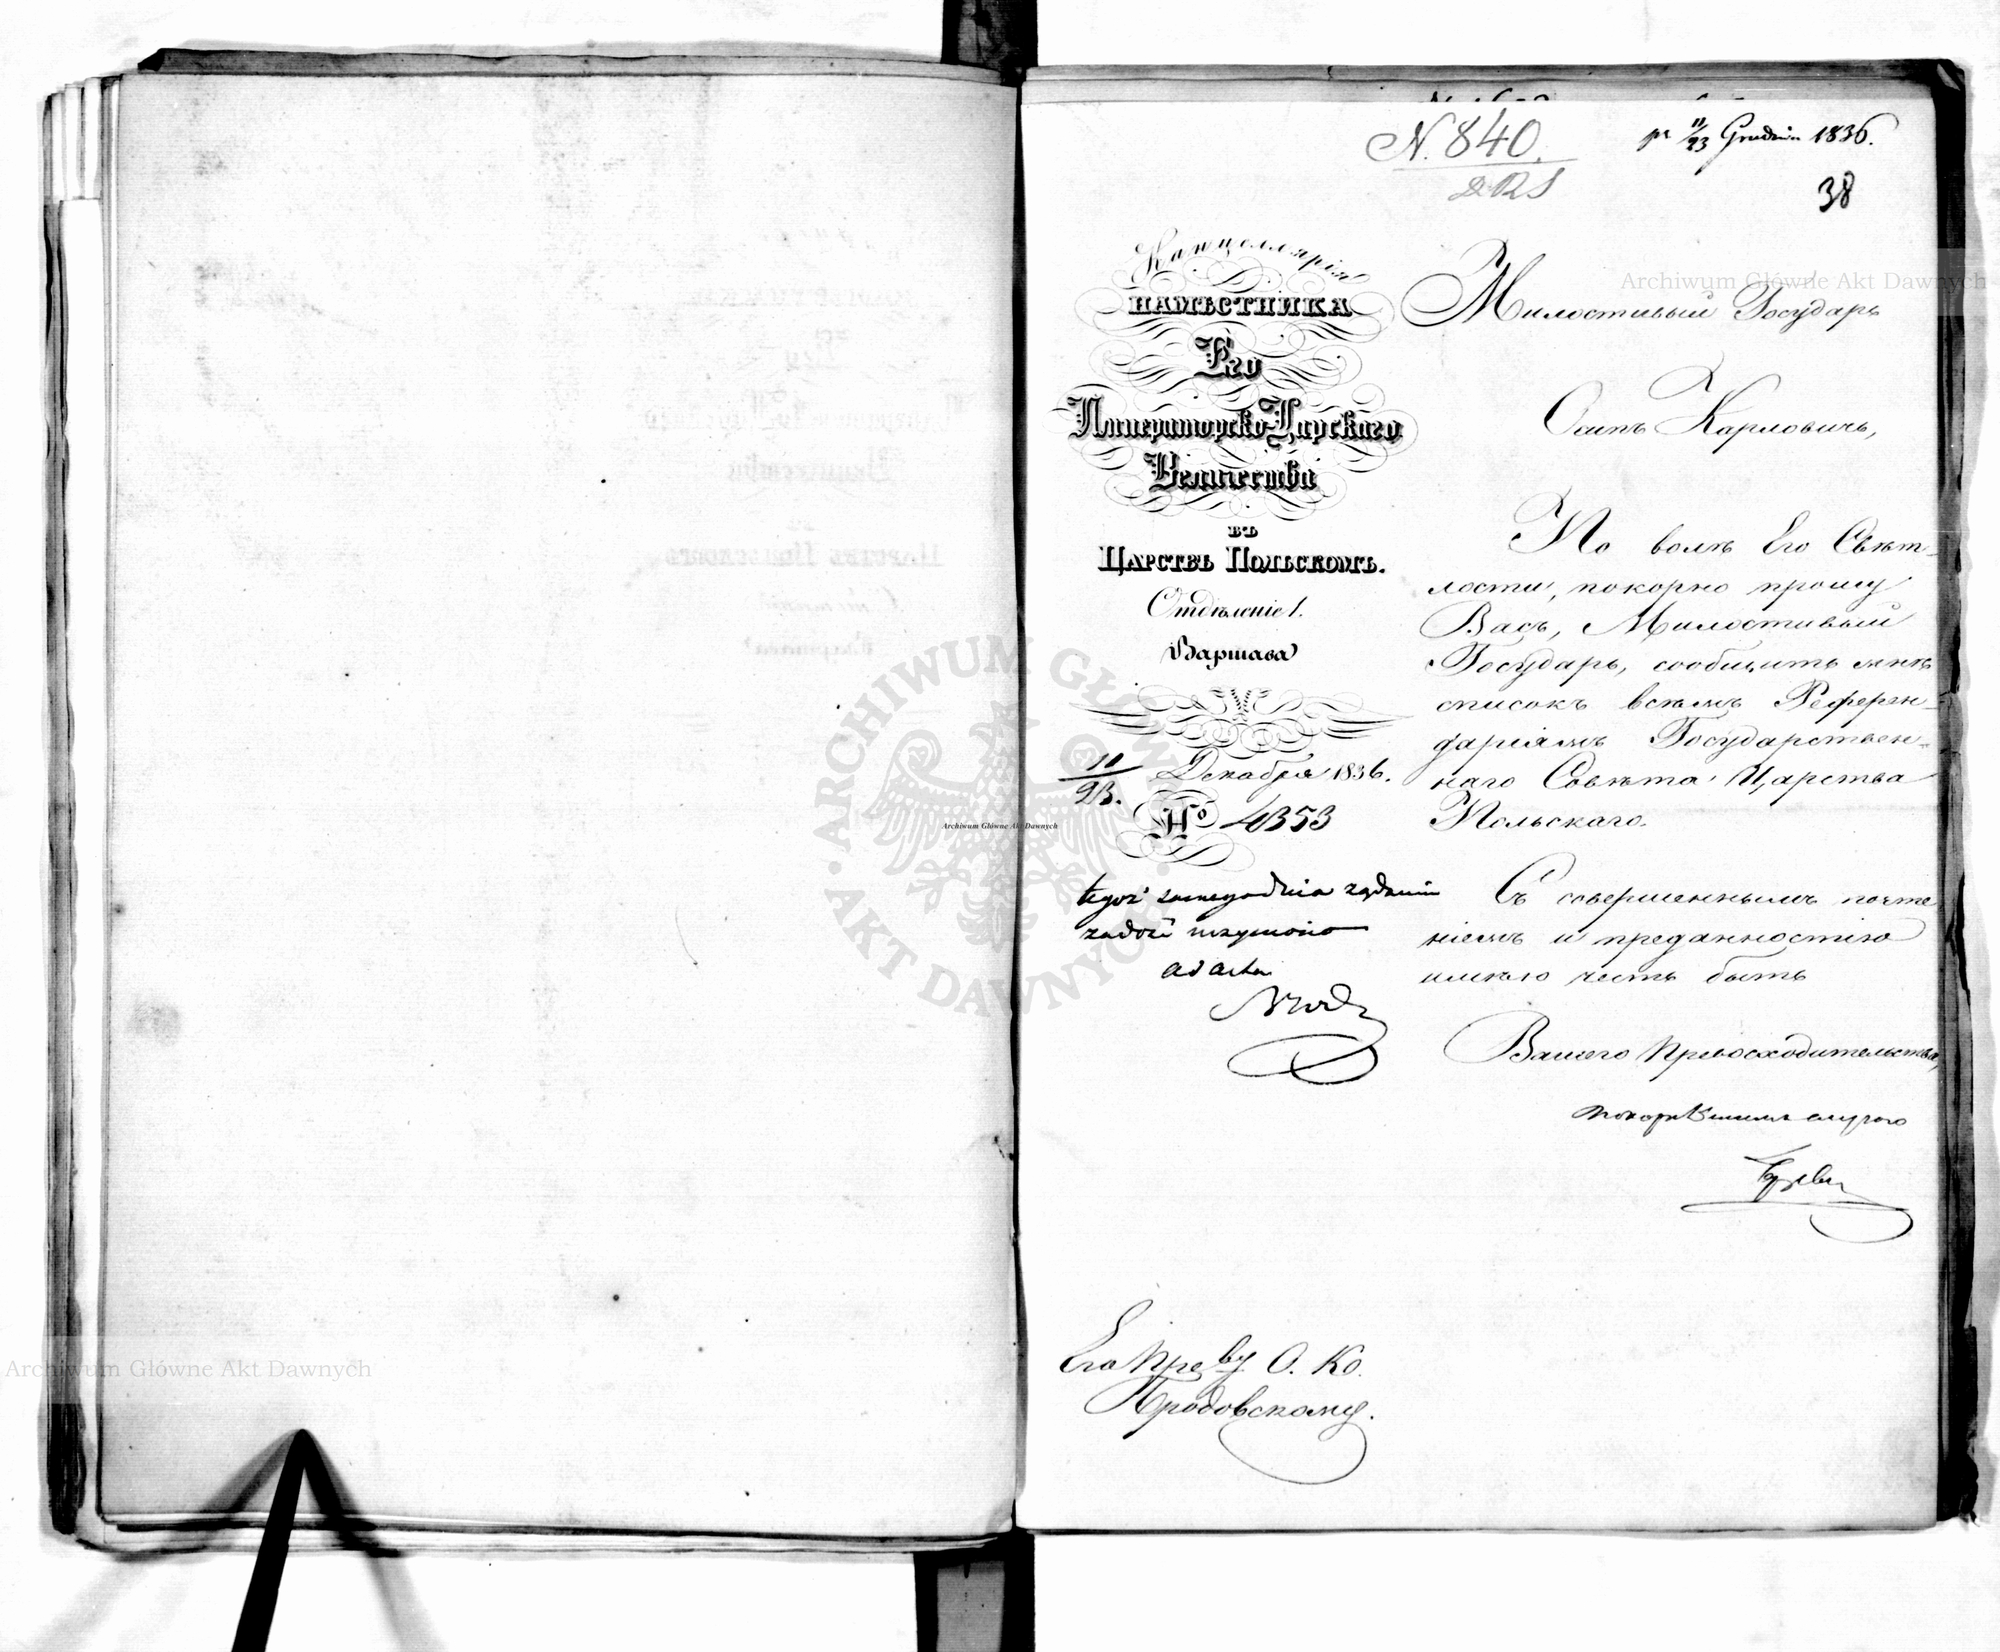 N. 840.
pr 11/23 Grudnia 1836.
38
Канцеллярія
НАМѢСТНИКА
Его
Императорско-Царскаго
Величества
въ
Царствѣ Польскомъ.
Отдѣленіе 1.
Варшава
10/22 Декабря 1836.
№ 4353
tegoż samego dnia żądaniu
zadość uczyniono
ad acta
Милостивый Государь
Осипъ Карловичъ,
По волѣ Его Свѣт-
лости, покорно прошу
Васъ, Милостивый
Государь, сообщить мнѣ
списокъ всѣмъ Референ-
даріямъ Государствен-
наго Совѣта Царства
Польскаго.
Съ совершеннымъ почте
ніемъ и преданностію
имѣю честь быть
Вашего Превосходительства,
покорнѣйшимъ слугою
Его Прев-ву О. К.
Бродовскому.
Archiwum Główne Akt Dawnych
Archiwum Główne Akt Dawnych
Archiwum Główne Akt Dawnych
ARCHIWUM GŁÓWNE AKT DAWNYCH